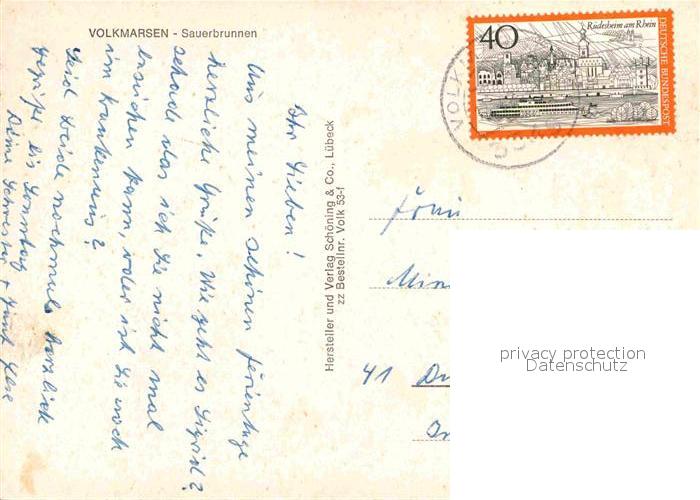 VOLKMARSEN - Sauerbrunnen
Ihr Lieben!
Aus meinen schönen Ferientage
herzliche Grüße. Wie geht es Sigrid?
schade das ich Sie nicht mal
besuchen kann, oder ist Sie noch
im Krankenhaus?
Seid beide nochmals herzlich
gegrüßt bis Sonntag
Deine Schwester + Tante Else
Hersteller und Verlag Schöning & Co., Lübeck
zz Bestellnr. Volk 53-f
40
Rüdesheim am Rhein
DEUTSCHE BUNDESPOST
VOLK
Frau
41
privacy protection
Datenschutz